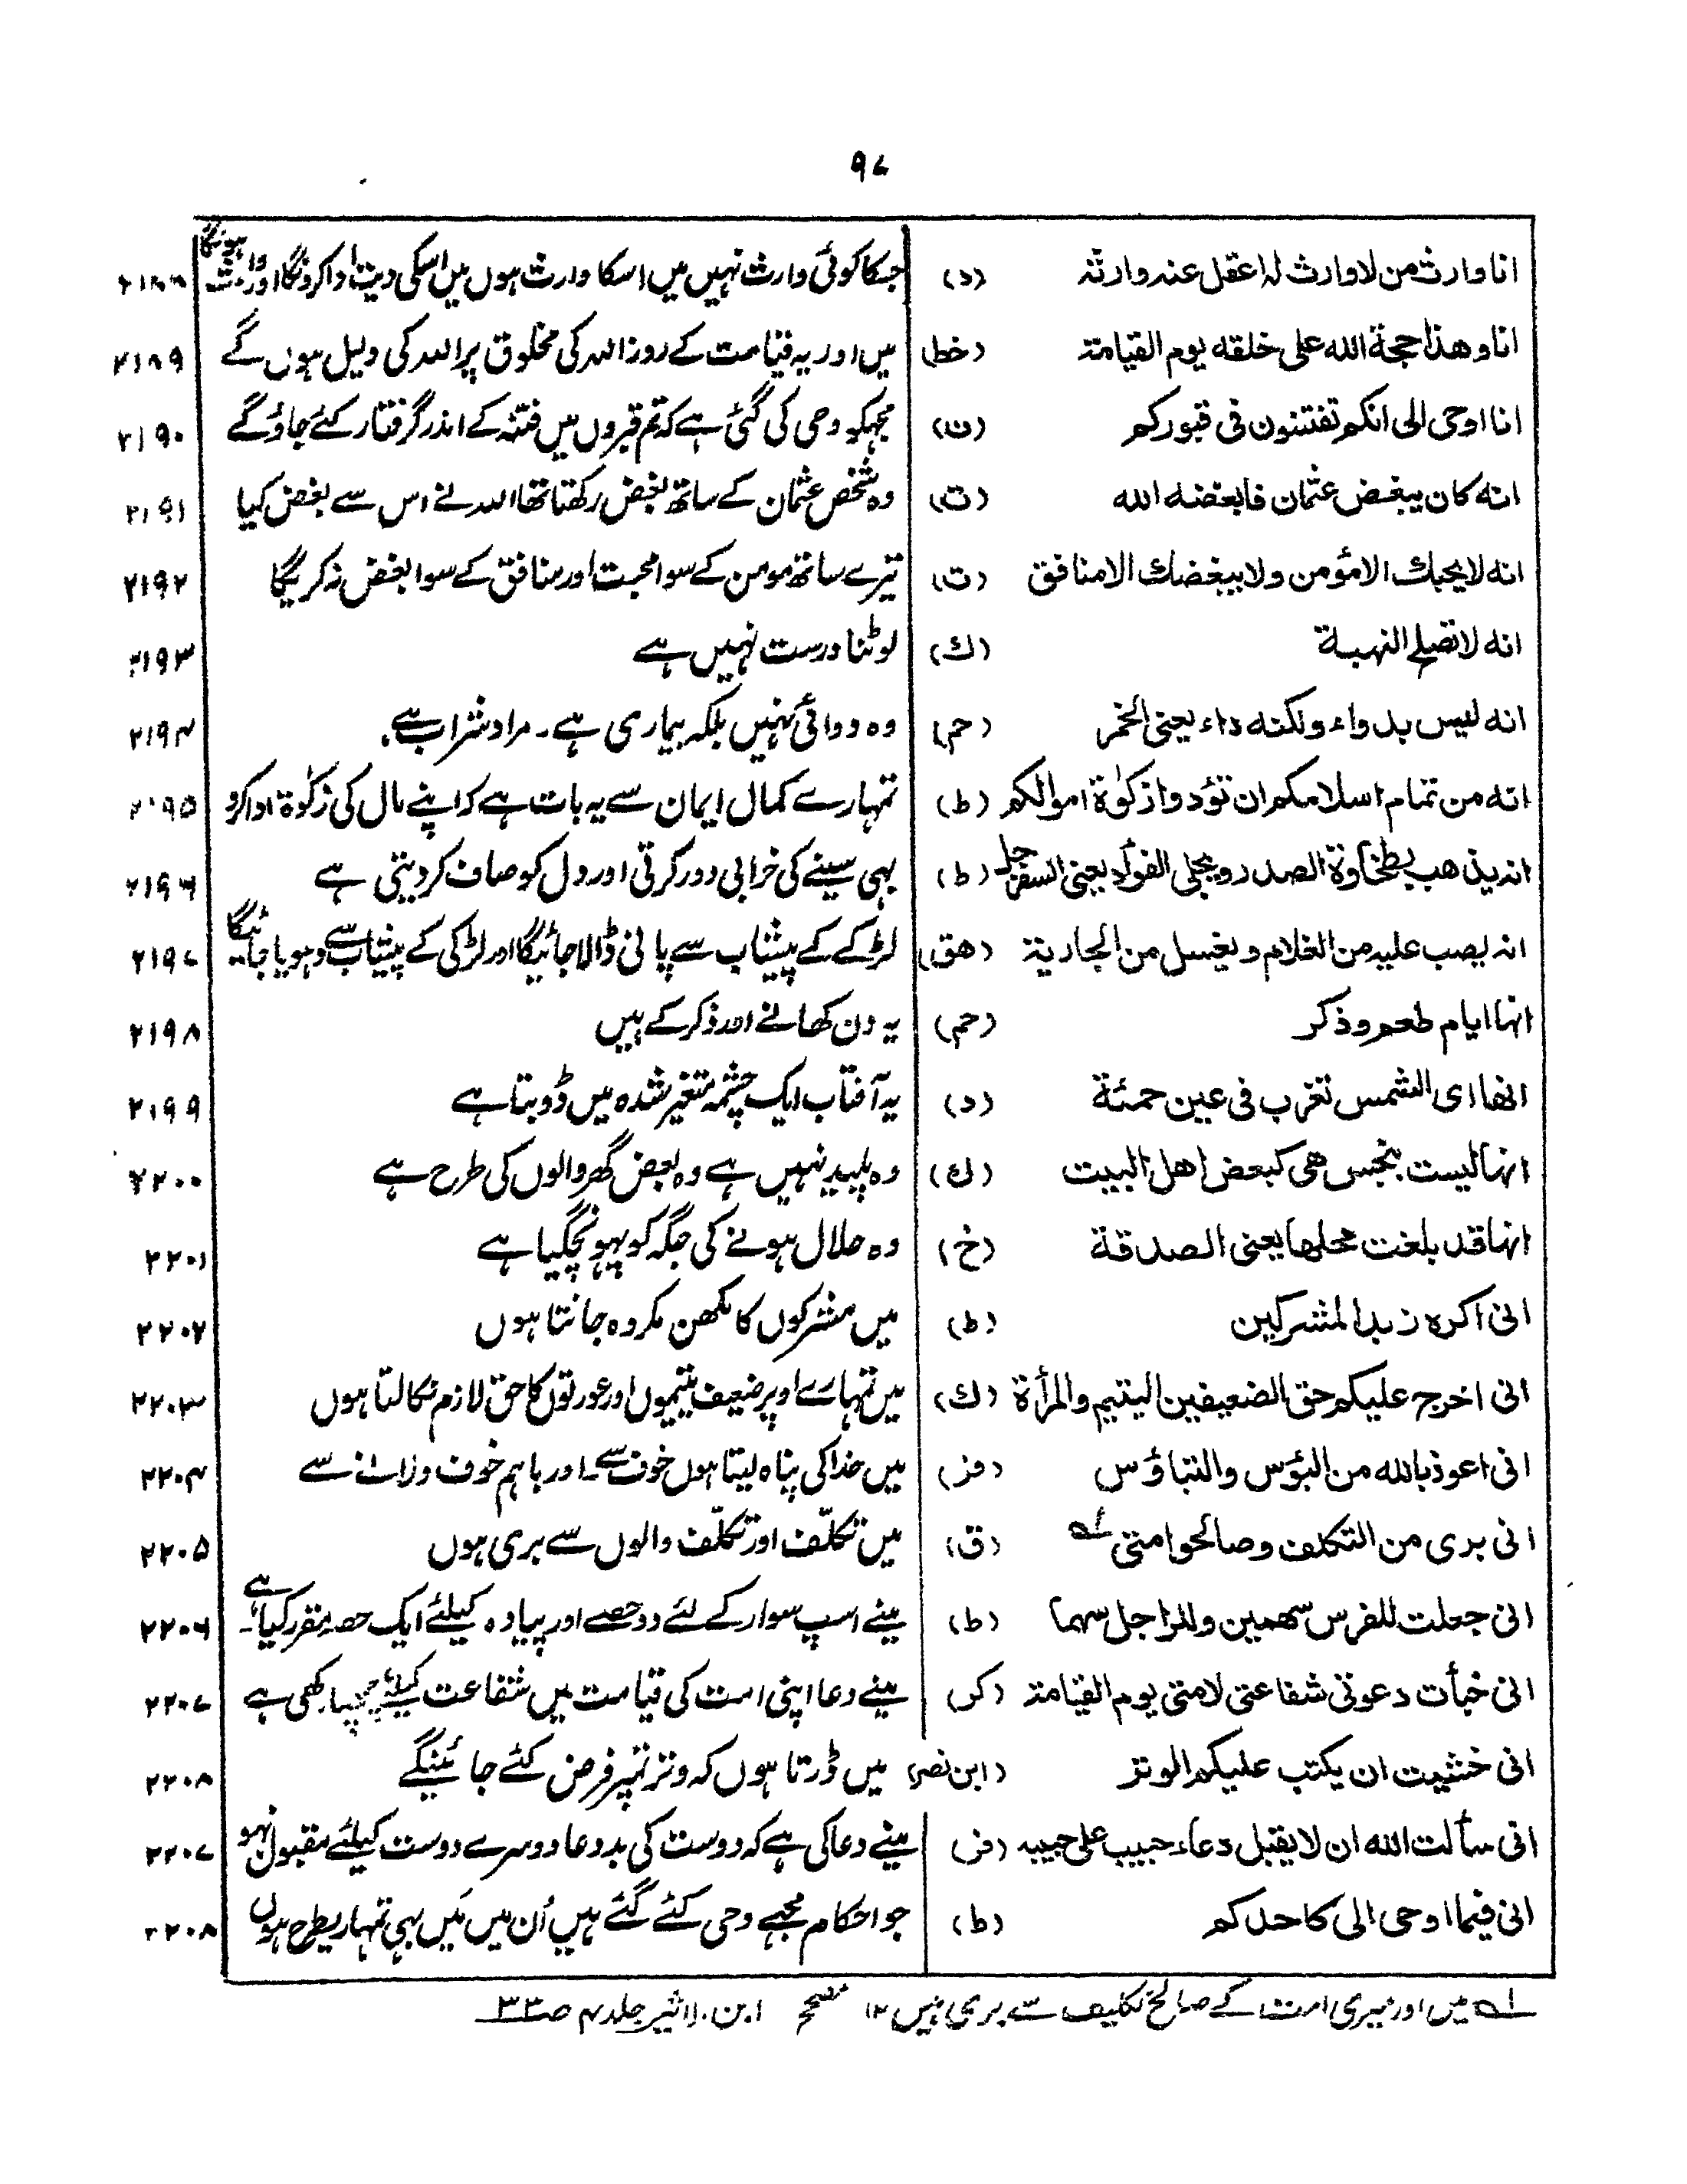 ۹۷
انا وارث من لا وارث له اعقل عنه وارثه (د) جسکا کوئی وارث نہیں میں اسکا وارث ہوں میں اسکی دیت ادا کرونگا اور وارث ہونگا ۲۱۸۸
انا وهذا حجة الله على خلقه يوم القيامة (خط) میں اور یہ قیامت کے روز اللہ کی مخلوق پر اللہ کی دلیل ہوں گے ۲۱۸۹
انا اوحى الى انكم تفتنون فى قبوركم (ن) مجہکو وحی کی گئی ہے کہ تم قبروں میں فتنہ کے اندر گرفتار کئے جاؤ گے ۲۱۹۰
انه كان يبغض عثمان فابغضه الله (ت) وہ شخص عثمان کے ساتھ بغض رکھتا تھا اللہ نے اس سے بغض کیا ۲۱۹۱
انه لا يحبك الا مؤمن ولا يبغضك الا منافق (ت) تیرے ساتھ مومن کے سوا محبت اور منافق کے سوا بغض نہ کریگا ۲۱۹۲
انه لا تصلح النهبة (ك) لوٹنا درست نہیں ہے ۲۱۹۳
انه ليس بدواء ولكنه داء يعنى الخمر (حم) وہ دوائی نہیں بلکہ بیماری ہے۔ مراد شراب ہے. ۲۱۹۴
انه من تمام اسلامكم ان تؤدوا زكوٰة اموالكم (ط) تمہارے کمال ایمان سے یہ بات ہے کہ اپنے مال کی زکوٰۃ ادا کرو ۲۱۹۵
انه يذهب بطخاوة الصدر ويجلى الفؤاد يعنى السفرجل (ط) بہی سینے کی خرابی دور کرتی اور دل کو صاف کر دیتی ہے ۲۱۹۶
انه يصب عليه من الغلام ويغسل من الجارية (هق) لڑکے کے پیشاب سے پانی ڈالا جائیگا اور لڑکی کے پیشاب سے دہویا جائیگا ۲۱۹۷
انها ايام طعم وذكر (حم) یہ دن کھانے اور ذکر کے ہیں ۲۱۹۸
انها اى الشمس تغرب فى عين حمئة (د) یہ آفتاب ایک چشمہ متغیر شدہ میں ڈوبتا ہے ۲۱۹۹
انها ليست بنجس هى كبعض اهل البيت (ك) وہ پلید نہیں ہے وہ بعض گھر والوں کی طرح ہے ۲۲۰۰
انها قد بلغت محلها يعنى الصدقة (خ) وہ حلال ہونے کی جگہ کو پہونچگیا ہے ۲۲۰۱
انى اكره زبد المشركين (ط) میں مشرکوں کا مکھن مکروہ جانتا ہوں ۲۲۰۲
انى احرج عليكم حق الضعيفين اليتيم والمرأة (ك) میں تمہارے اوپر ضعیف یتیموں اور عورتوں کا حق لازم نکالتا ہوں ۲۲۰۳
انى اعوذ بالله من البؤس والتباؤس (فر) میں خدا کی پناہ لیتا ہوں خوف سے اور باہم خوف دلانے سے ۲۲۰۴
انى برى من التكلف وصالحوا امتى له (ق) میں تکلّف اور تکلّف والوں سے بری ہوں ۲۲۰۵
انى جعلت للفرس سهمين وللراجل سهما (ط) مینے اسپ سوار کے لئے دو حصے اور پیادہ کیلئے ایک حصہ مقرر کیا ہے۔ ۲۲۰۶
انى خبأت دعوتى شفاعتى لامتى يوم القيامة (كر) مینے دعا اپنی امت کی قیامت میں شفاعت کیلئے چھپا رکھی ہے ۲۲۰۷
انى خشيت ان يكتب عليكم الوتر (ابن نصر) میں ڈرتا ہوں کہ وتر تمپر فرض کئے جائینگے ۲۲۰۸
انى سألت الله ان لا يقبل دعاء حبيب على حبيبه (فر) مینے دعا کی ہے کہ دوست کی بد دعا دوسرے دوست کیلئے مقبول نہو ۲۲۰۷
انى فيما اوحى الى كاحدكم (ط) جو احکام مجہے وحی کئے گئے ہیں اُن میں مَیں بہی تمہاریطرح ہوں ۲۲۰۸
لہ میں اور میری امت کے صالح تکلیف سے بری ہیں ۱۲ مصحح ابن الاثیر جلد ۴ صـ۳۳